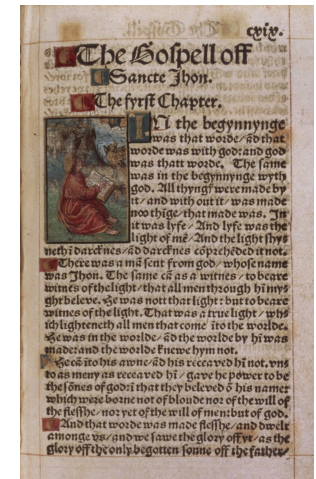 cxix.
The Gospell off
Sancte Jhon.
The fyrst Chapter.
IN the begynnynge
was that worde/ ād that
worde was with god: and god
was thatt worde. The same
was in the begynnynge wyth
god. All thyngꝭ were made by
it/ and with out it/ was made
noo thīge/ that made was. In
it was lyfe/ And lyfe was the
light of mē/ And the light shy⸗
neth ī darcknes/ ād darcknes cōprehēded it not.
There was a mā sent from god/ whose name
was Jhon. The same cā as a witnes/ to beare
witnes of the light/ that all men through hī my⸗
ght beleve. He was nott that light: but to beare
witnes of the light. That was a true light/ wh⸗
ich lighteneth all men that come īto the worlde.
He was in the worlde/ ād the worlde by hī was
made: and the worlde knewe hym not.
He cā īto his awne/ ād his receaved hī not. vns
to as meny as receaved hī/ gave he power to be
the sōnes of god: ī that they beleved ō his name:
which were borne not of bloude nor of the will of
the flesshe/ nor yet of the will of men: but of god.
And that worde was made flesshe/ and dwelt
amonge vs/ and we sawe the glory off yt/ as the
glory off the only begotten sonne off the father/